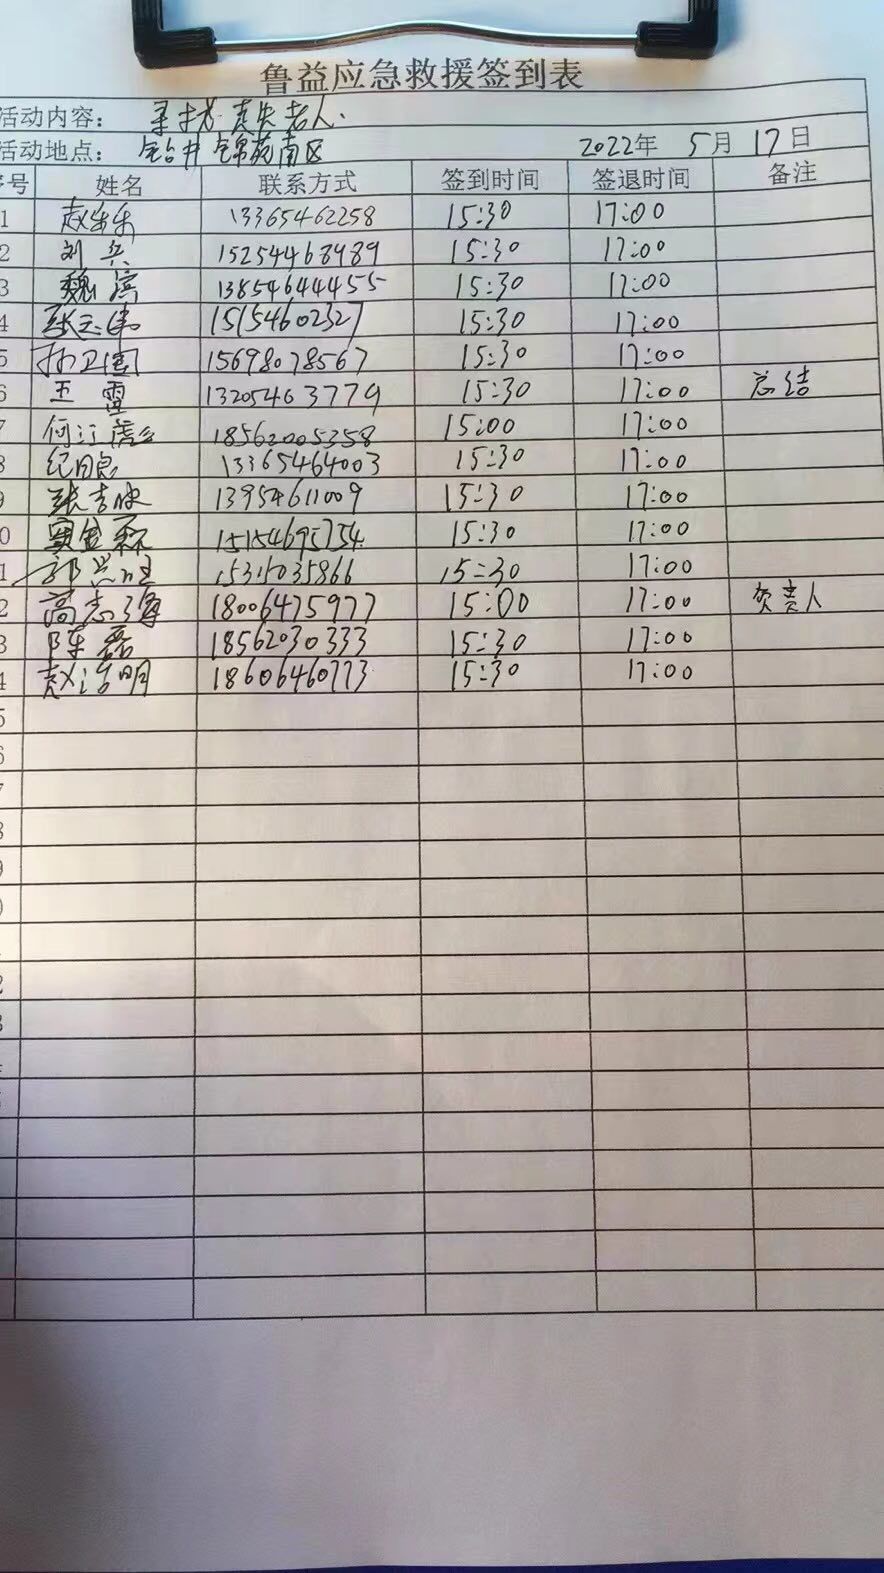 鲁益应急救援签到表
活动内容: 寻找走失老人.
活动地点: 钻井锦苑南区 2022年 5月 17日
号 姓名 联系方式 签到时间 签退时间 备注
1 赵乐乐 13365462258 15:30 17:00
2 刘兵 15254468989 15:30 17:00
3 魏滨 13854644455 15:30 17:00
4 张志伟 15154602327 15:30 17:00
5 孙卫国 15698078567 15:30 17:00
6 王雷 13205463779 15:30 17:00 总结
7 18562005358 15:00 17:00
8 纪明良 13365464003 15:30 17:00
9 张吉 13954611009 15:30 17:00
0 15154695754 15:30 17:00
1 郭兴旺 15315035866 15:30 17:00
2 高志海 18006475977 15:00 17:00 负责人
3 陈磊 18562030333 15:30 17:00
4 赵洁明 18606460773 15:30 17:00
5
6
7
8
9
0
2
3